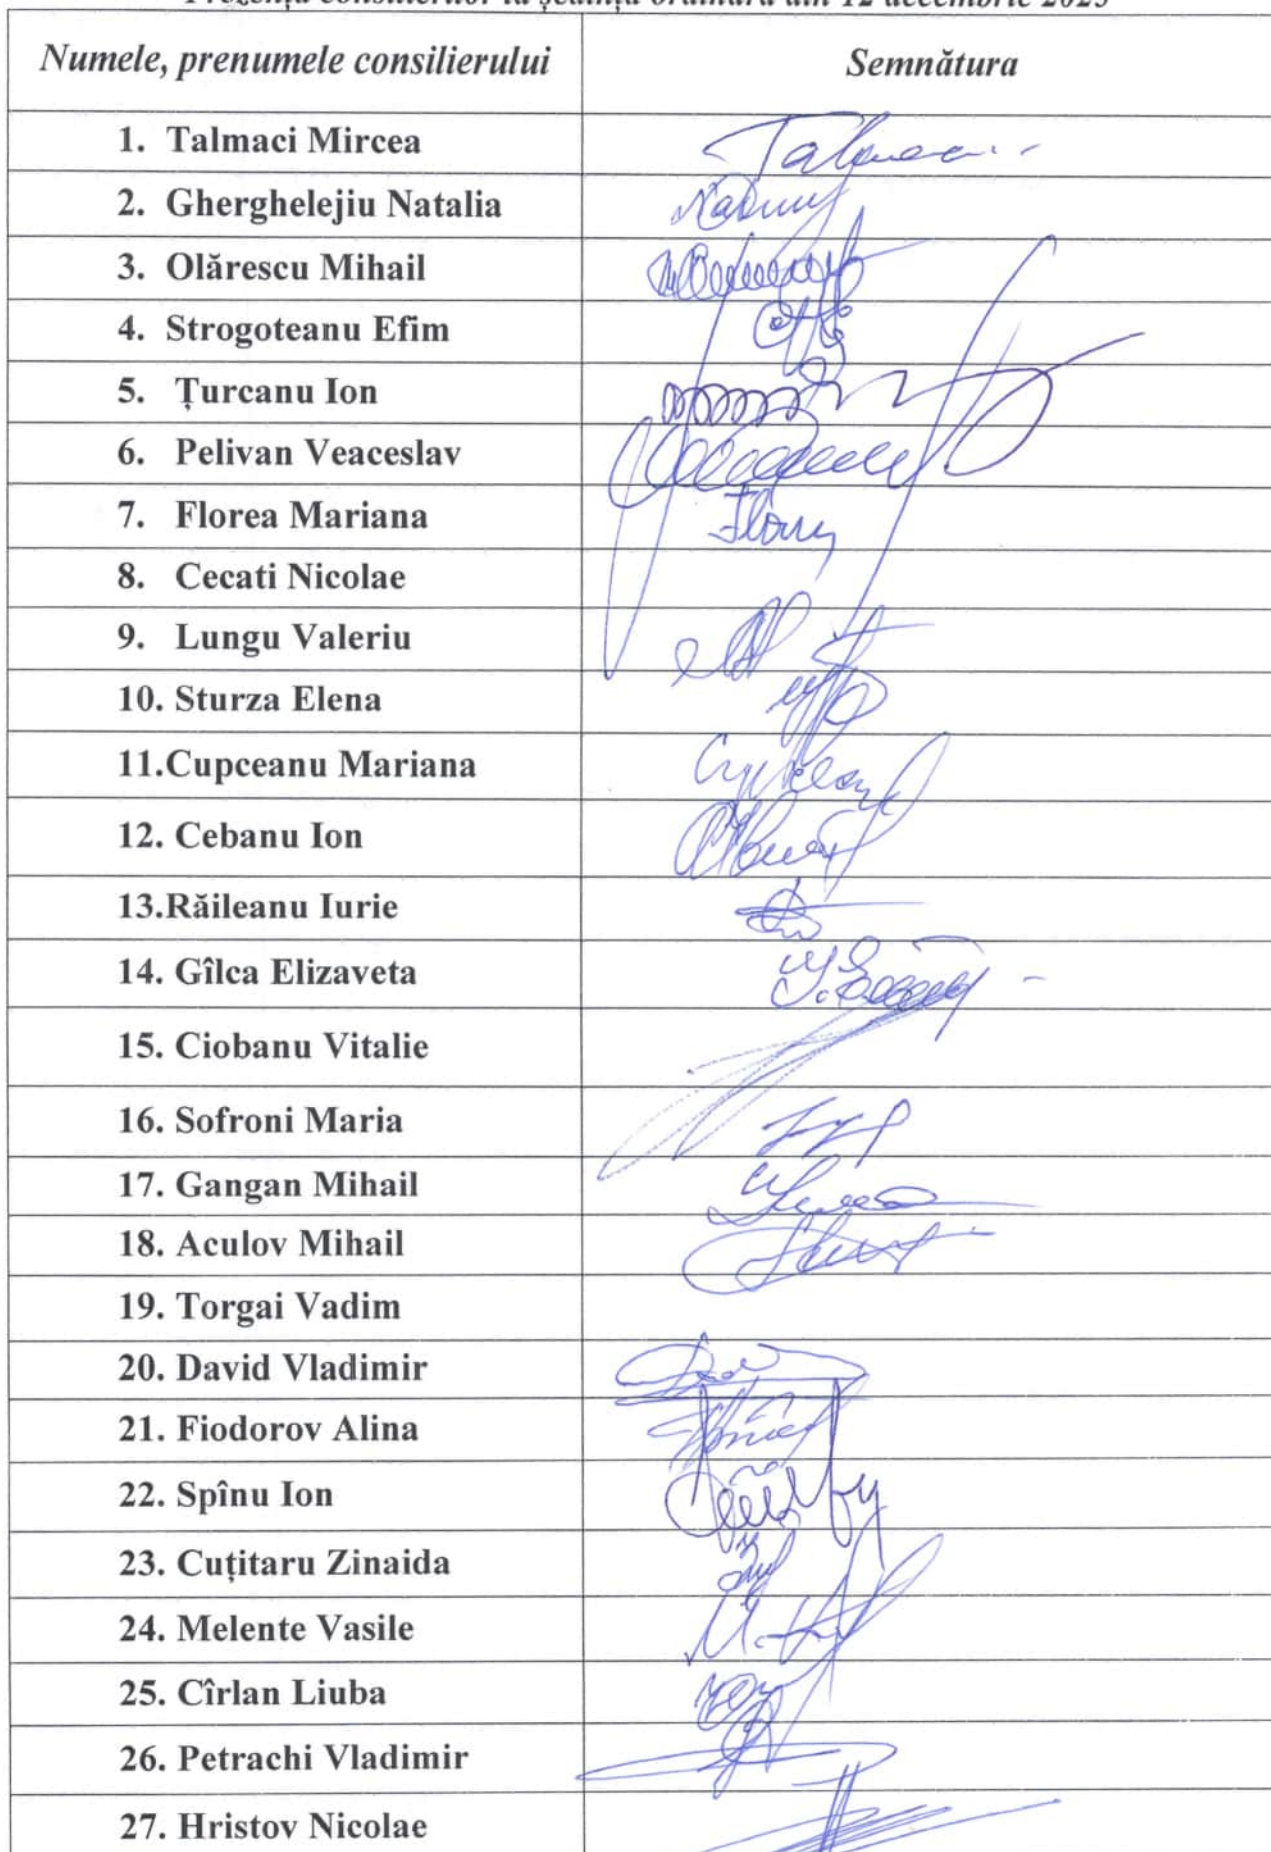 Prezența consilierilor la ședința ordinară din 12 decembrie 2023
Numele, prenumele consilierului Semnătura
1. Talmaci Mircea
2. Gherghelejiu Natalia
3. Olărescu Mihail
4. Strogoteanu Efim
5. Țurcanu Ion
6. Pelivan Veaceslav
7. Florea Mariana
8. Cecati Nicolae
9. Lungu Valeriu
10. Sturza Elena
11.Cupceanu Mariana
12. Cebanu Ion
13.Răileanu Iurie
14. Gîlca Elizaveta
15. Ciobanu Vitalie
16. Sofroni Maria
17. Gangan Mihail
18. Aculov Mihail
19. Torgai Vadim
20. David Vladimir
21. Fiodorov Alina
22. Spînu Ion
23. Cuțitaru Zinaida
24. Melente Vasile
25. Cîrlan Liuba
26. Petrachi Vladimir
27. Hristov Nicolae